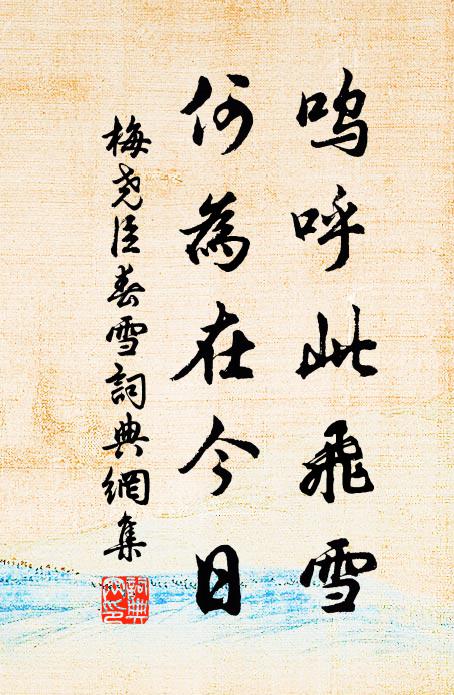 呜呼此飛雪
何為在今日
梅尧臣春雪詞典網集